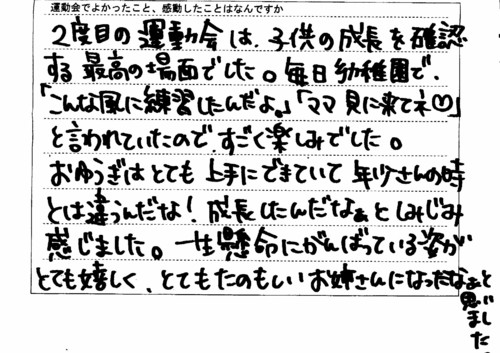 運動会でよかったこと、感動したことはなんですか
2度目の運動会は、子供の成長を確認
する最高の場面でした。毎日幼稚園で、
「こんな風に練習したんだよ。」「ママ見に来てネ♡」
と言われていたので、すごく楽しみでした。
おゆうぎはとても上手にできていて年少さんの時
とは違うんだな!成長したんだなぁとしみじみ
感じました。一生懸命にがんばっている姿が
とても嬉しく、とてもたのもしいお姉さんになったなぁと
思いました。